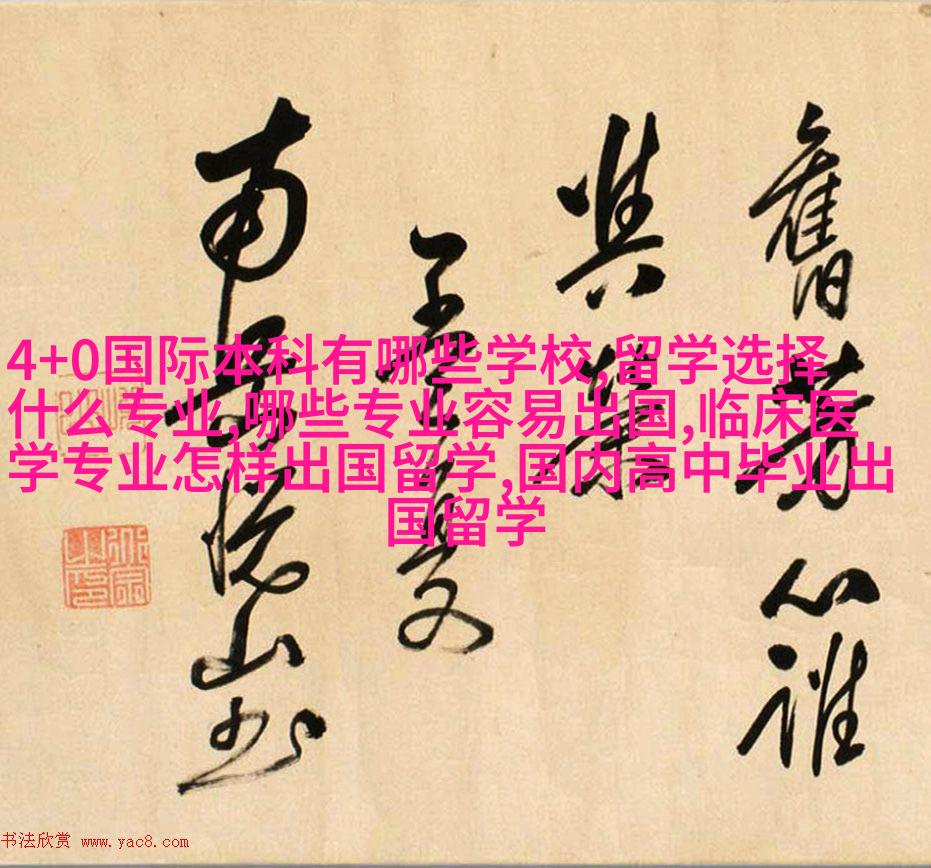 4+0国际本科有哪些学校,留学选择
什么专业,哪些专业容易出国,临床医
学专业怎样出国留学,国内高中毕业出
国留学
舊 心誰
與
孟夏
南 悦山书
书法欣赏 www.yac8.com